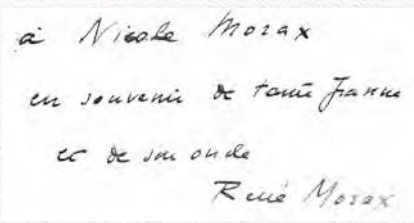 à Nicole Morax
en souvenir de tante Jeanne
et de son oncle
René Morax